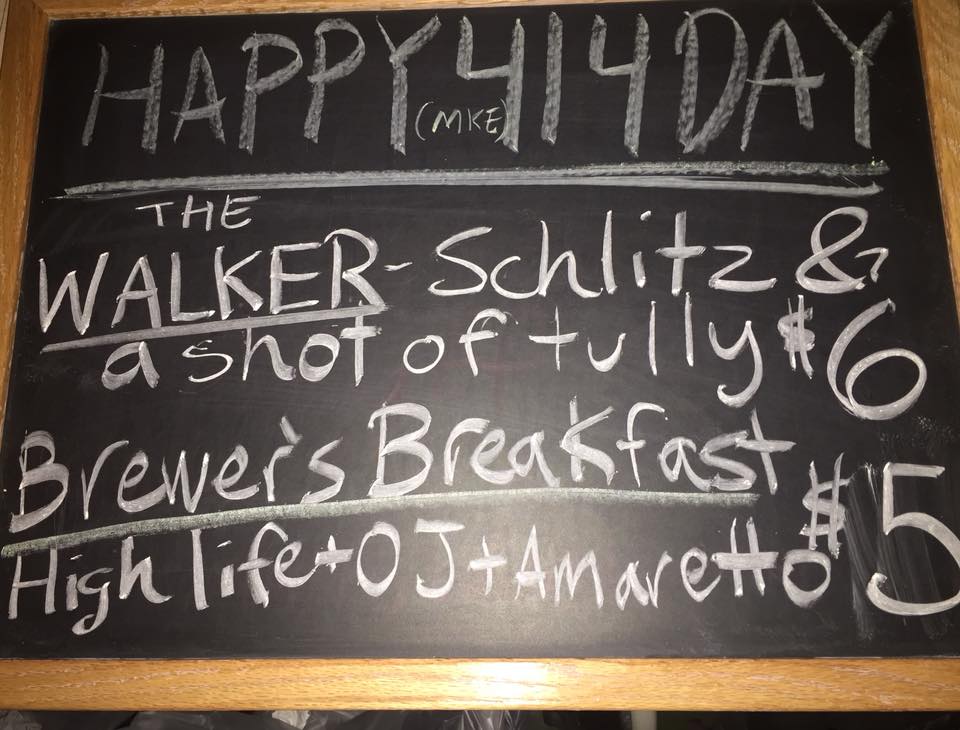 HAPPY 414 DAY
(MKE)
THE
WALKER - Schlitz &
a shot of tully $6
Brewer's Breakfast
High life + OJ + Amaretto $5